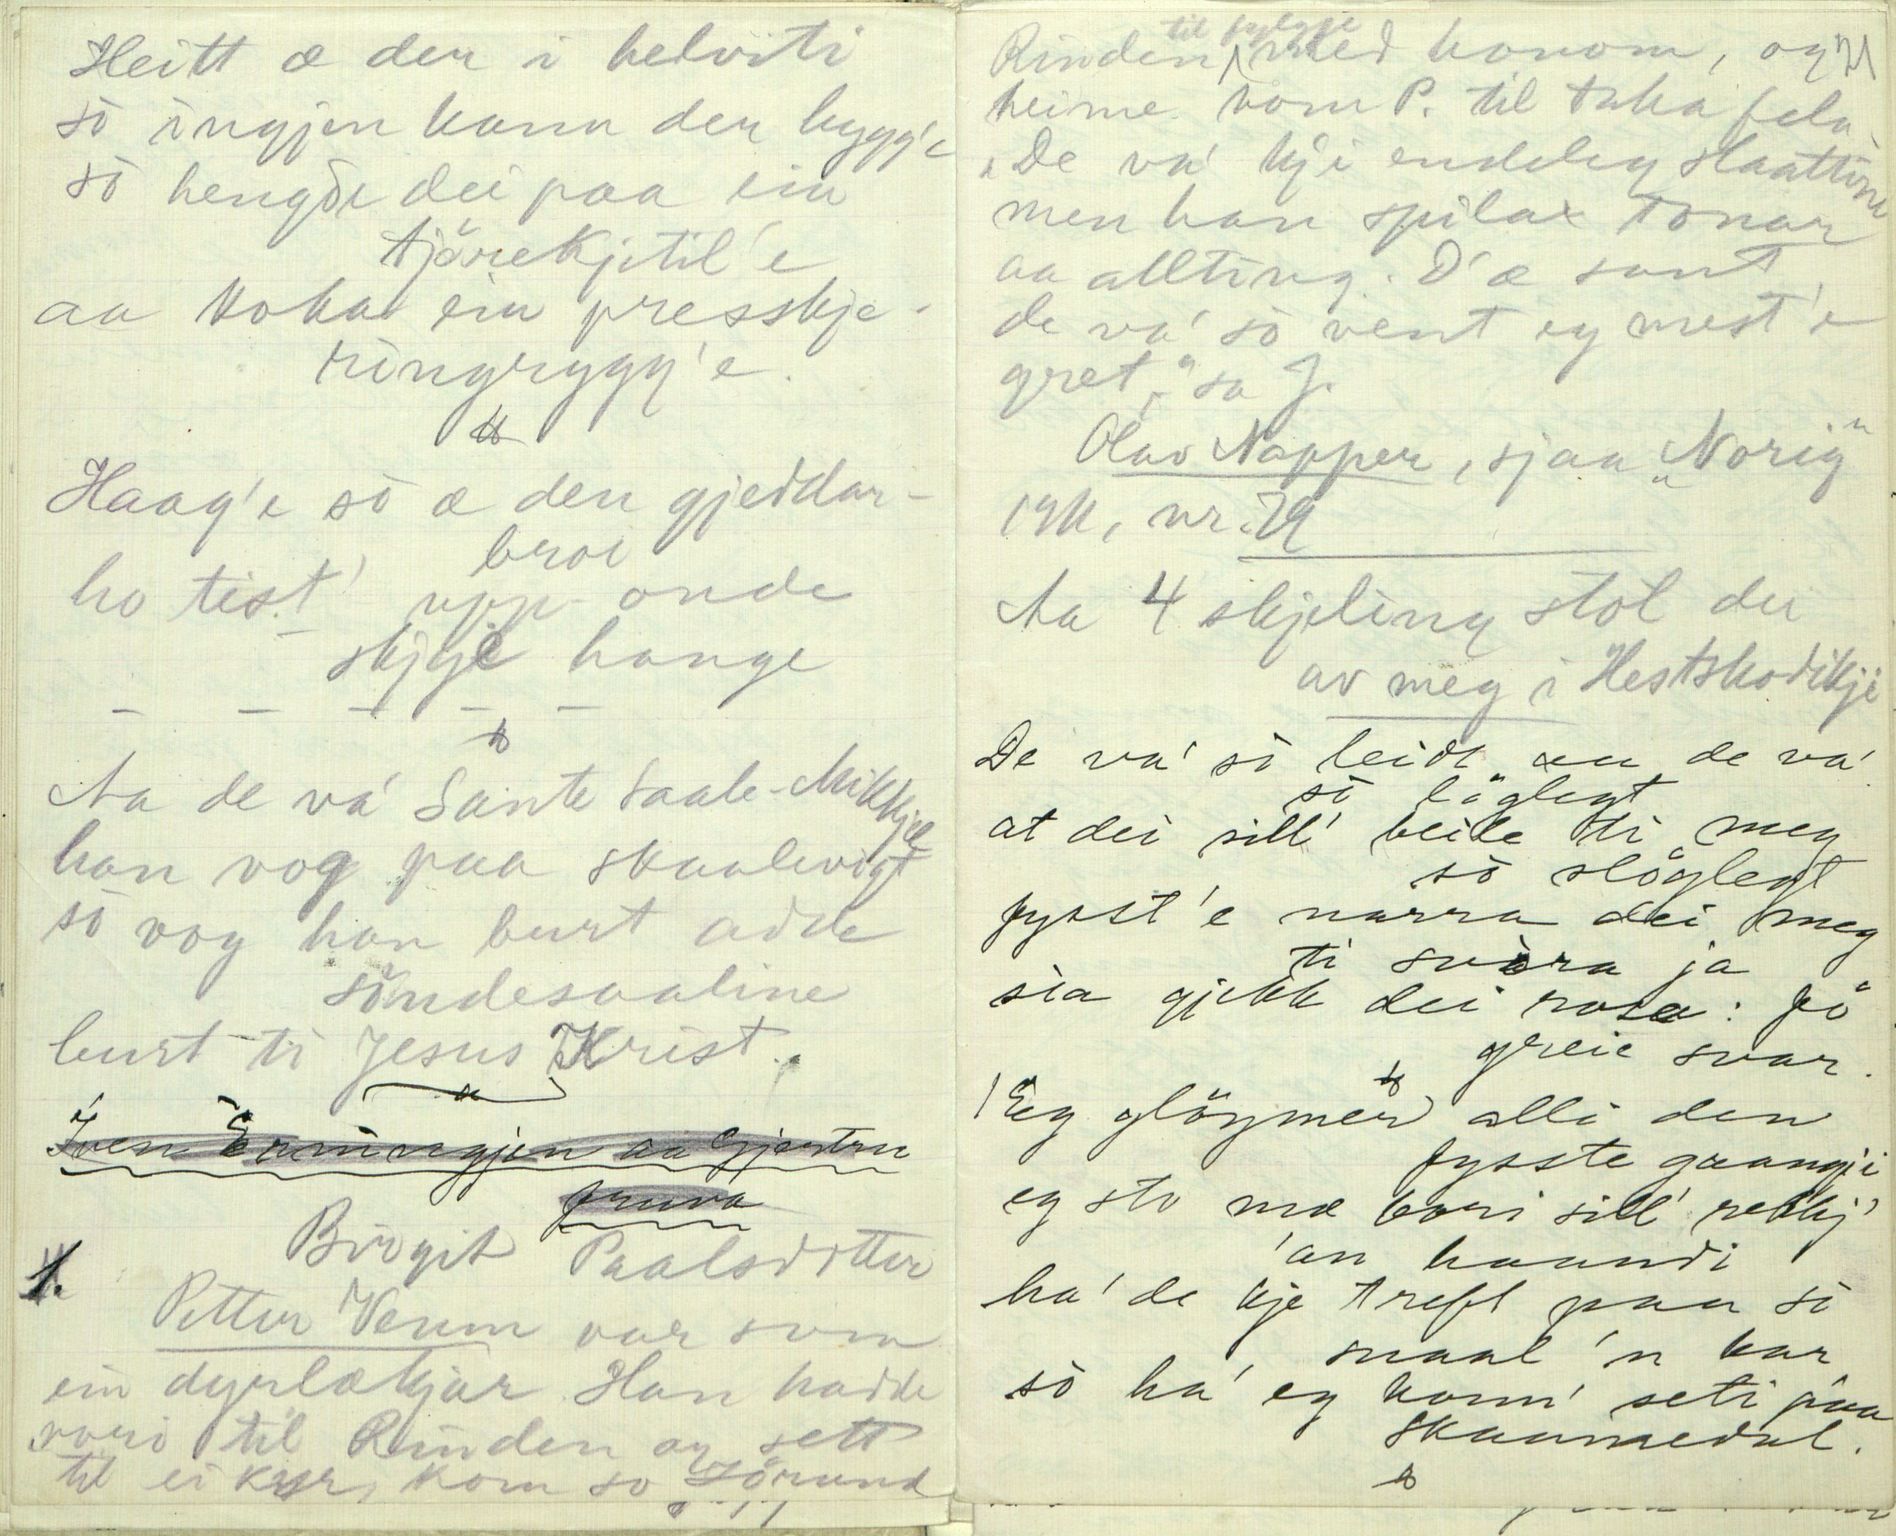 Heitt æ der i helviti
so ingjen kann der bygg'e
so hengde dei paa ein
tjörekjetil'e
aa koka ein presskje-
ringrygg'e.
Haag'e so æ den gjeddar-
broi
ho tist' upp onde
skyji hange
— — — — —
Aa de va' Sante Saale-Mikkjel
han vog paa skaalevigt
so vog han burt adde
söndesaaline
burt ti Jesus Krist.
Iven Erningjen aa Gjertru
fruva
Birgit Paalsdotter
1. Petter Veum var som
ein dyrlækjar. Han hadde
vori til Rinden og sett
til ei kyr, kom so Jörund
Rinden, til fylgje med honom, og 71
heime kom P. til taka fela.
"De va' kji endeleg slaattine
men han spila tonar
aa allting. D'æ sant,
de va' so vent eg mest'e
gret," sa J.
Olav Napper, sjaa "Norig"
1911, nr. 79
Aa 4 skjeling stol dei
av meg i Hestskodikji
De va' so leidt aa de va'
so löglegt
at dei sill' beile ti meg
so slöglegt
fysst'e narra dei meg
ti svara ja
sia gjekk dei rosa: fö
greie svar.
Eg glöymer alli den
fysste gaangji
eg sto mæ bori sill' rekkj'
'an haandi
ha' de kje treft paa so
snaal 'n kar
so ha' eg komm' seti paa
skaammedal.